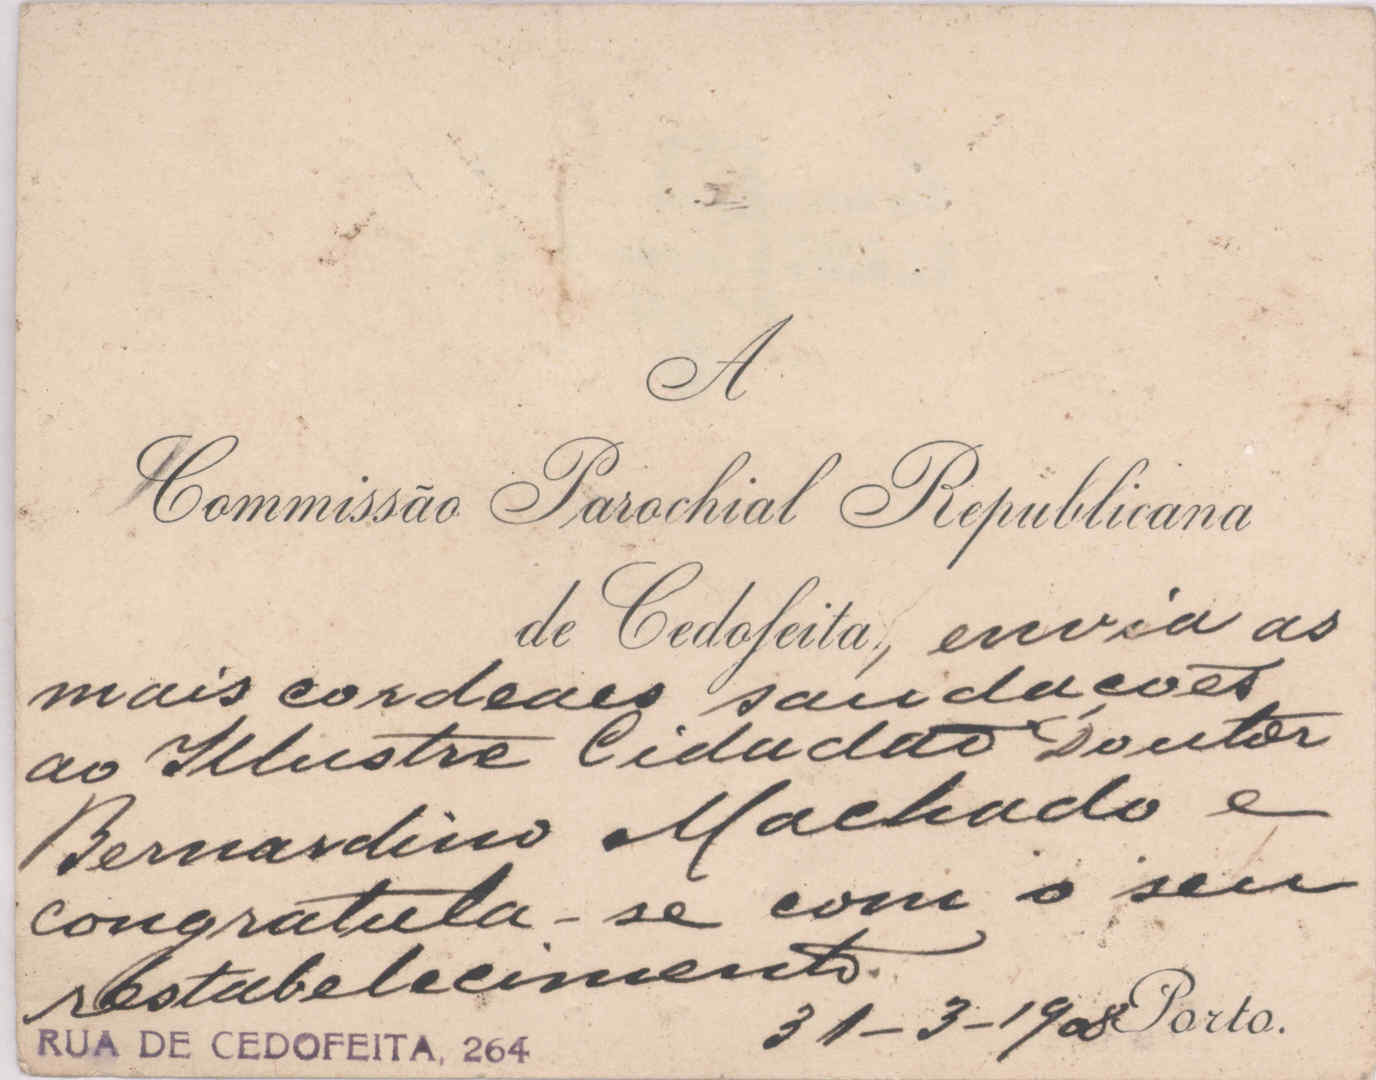 A
Commissão Parochial Republicana
de Cedofeita, envia as
mais cordeaes saudações
ao Illustre Cidadão Doutor
Bernardino Machado e
congratula-se com o seu
restabelecimento.
31-3-1908 Porto.
RUA DE CEDOFEITA, 264